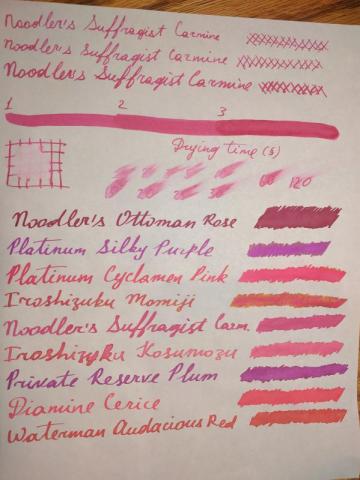 Noodler's Suffragist Carmine
Noodler's Suffragist Carmine
Noodler's Suffragist Carmine
1 2 3
Drying time (s)
60 120
20
Noodler's Ottoman Rose
Platinum Silky Purple
Platinum Cyclamen Pink
Iroshizuku Momiji
Noodler's Suffragist Carm.
Iroshizuku Kosumozu
Private Reserve Plum
Diamine Cerice
Waterman Audacious Red